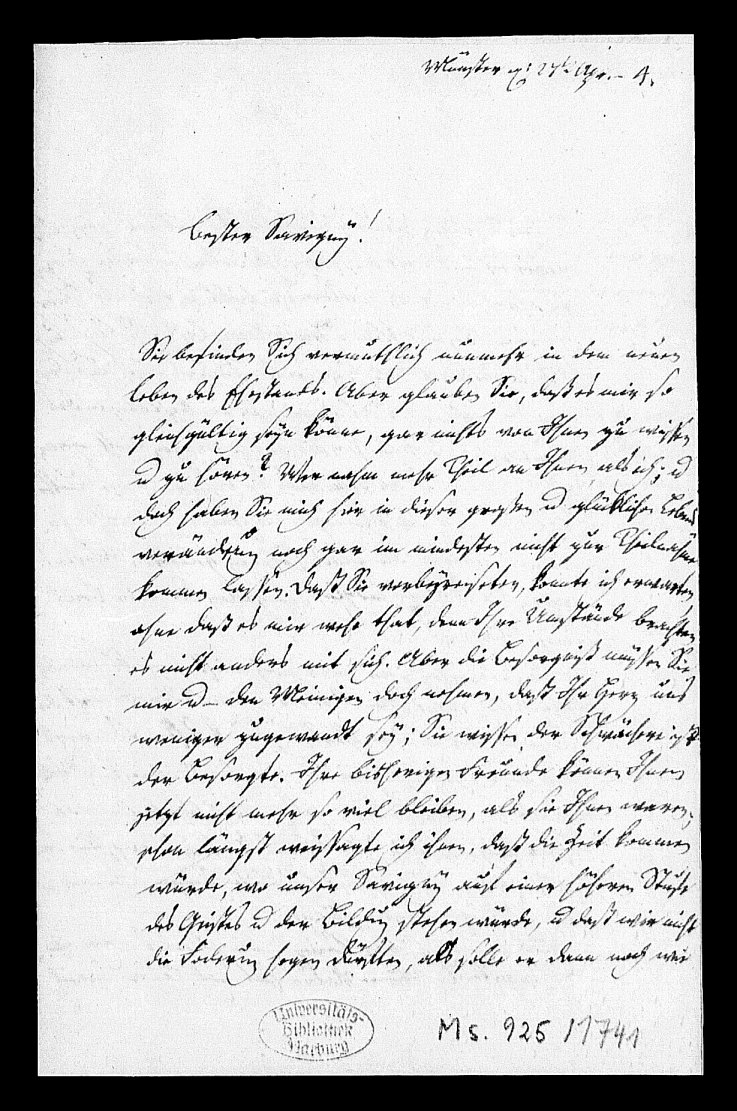 Münster d 27t Apr. – 4.
Bester Savigny!
Sie befinden Sich vermuthlich nunmehr in dem neuen
Leben des Ehestands. Aber glauben Sie, daß es mir so
gleichgültig seyn könne, gar nichts von Ihnen zu wissen
u zu hören? Wer nahm mehr Theil an Ihnen, als ich; u
doch haben Sie mich hier in dieser großen u glücklichen Lebens
veränderung noch gar im mindesten nicht zur Theilnahme
kommen lassen. Daß Sie vorbeyreiseten, konnte ich erwarten,
ohne daß es mir wehe that, denn Ihre Umstände brachten
es nicht anders mit sich. Aber die Besorgniß müssen Sie
mir u – den Meinigen doch nehmen, daß Ihr Herz uns
weniger zugewandt sey; Sie wissen der Schwächere ist
der Besorgte. Ihre bisherigen Freunde können Ihnen
jetzt nicht mehr so viel bleiben, als sie Ihnen waren;
schon längst weissagte ich ihnen, daß die Zeit kommen
würde, wo unser Savigny auf einer höheren Stufe
des Geistes u der Bildung stehen würde, u daß wir nicht
die Foderung hegen dürften, als solle er dann noch wie
Universitäts-
Bibliothek
Marburg
Ms. 925/1741